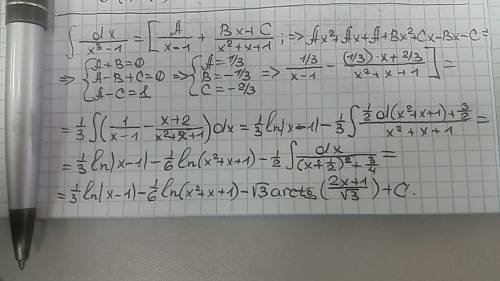 ∫ dx/(x³-1) = [A/(x-1) + (Bx+C)/(x²+x+1); => Ax²+Ax+A+Bx²+Cx-Bx-C =
=> {A+B=0 A-B+C=0 A-C=1 => {A=1/3 B=-1/3 C=-2/3 => (1/3)/(x-1) - ((1/3)·x+2/3)/(x²+x+1)] =
= 1/3 ∫(1/(x-1) - (x+2)/(x²+x+1))dx = 1/3 ln|x-1| - 1/3 ∫ (1/2 d(x²+x+1)+3/2)/(x²+x+1) =
= 1/3 ln|x-1| - 1/6 ln(x²+x+1) - 1/2 ∫ dx/((x+1/2)²+3/4) =
= 1/3 ln|x-1) - 1/6 ln(x²+x+1) - √3 arctg((2x+1)/√3) + C.